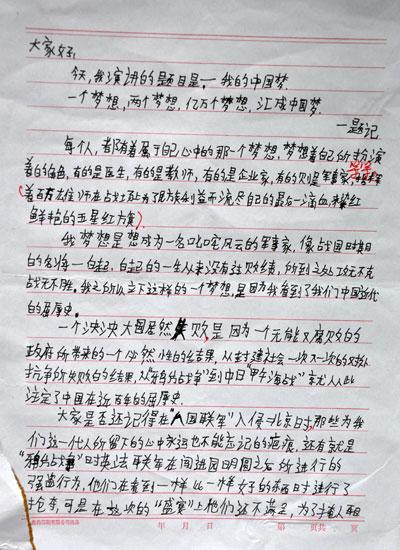 大家好:
今天,我演讲的是题目是一 我的中国梦.
一个梦想,两个梦想,亿万个梦想,汇成中国梦.
一题记.
每个人,都有着属于自己心中的那一个梦想,梦想着自己所扮演
着的角色,有的是医生,有的是教师,有的是企业家,有的则是军事家,
着百万雄师在战土上为了民族的利益而流尽自己的最后一滴血,染红
鲜艳的五星红方旗).
我梦想是想成为一名叱咤风云的军事家,像战国时期
的名将一白起,白起的一生从来没有过败绩,所到之处攻无不克
战无不胜.我之所以立下这样的一个梦想,是因为我看到了我们中国近代
的屈历史.
一个泱泱大国居然失败是因为一个无能又腐败的
政府所带来的一个必然性的结果,从封建社会一次又一次的
抗争所失败的结果,从"鸦片战争"到中日"甲午海战"就从此
注定了中国在近百年的屈历史.
大家是否还记得在"八国联军"入侵北京时,那些为我
们这一代人所留下的心中永远也不能忘记的疤痕,还有就是
"鸦片战争"时英法联军在闯进园明园之后所进行的
强盗行为,他们在看到一样比一样好的东西时进行了
抢夺,可是在这次的"盛宴"上他们还不满足,为了掩人耳
年 月 日 第 页共 页